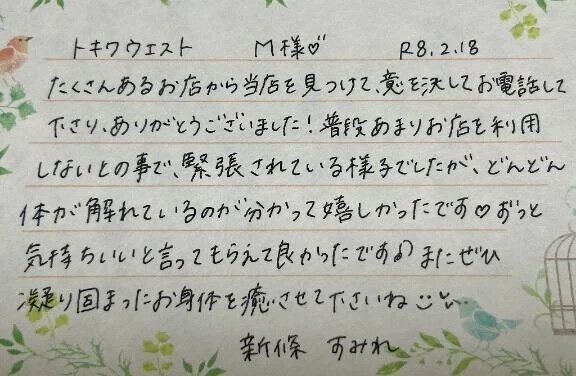 トキワウエスト M様♡ R8.2.18
たくさんあるお店から当店を見つけて、意を決してお電話して
下さり、ありがとうございました!普段あまりお店を利用
しないとの事で、緊張されている様子でしたが、どんどん
体が解れているのが分かって嬉しかったです♡ずっと
気持ちいいと言ってもらえて良かったです♪またぜひ
凝り固まったお身体を癒させて下さいね
新條 すみれ